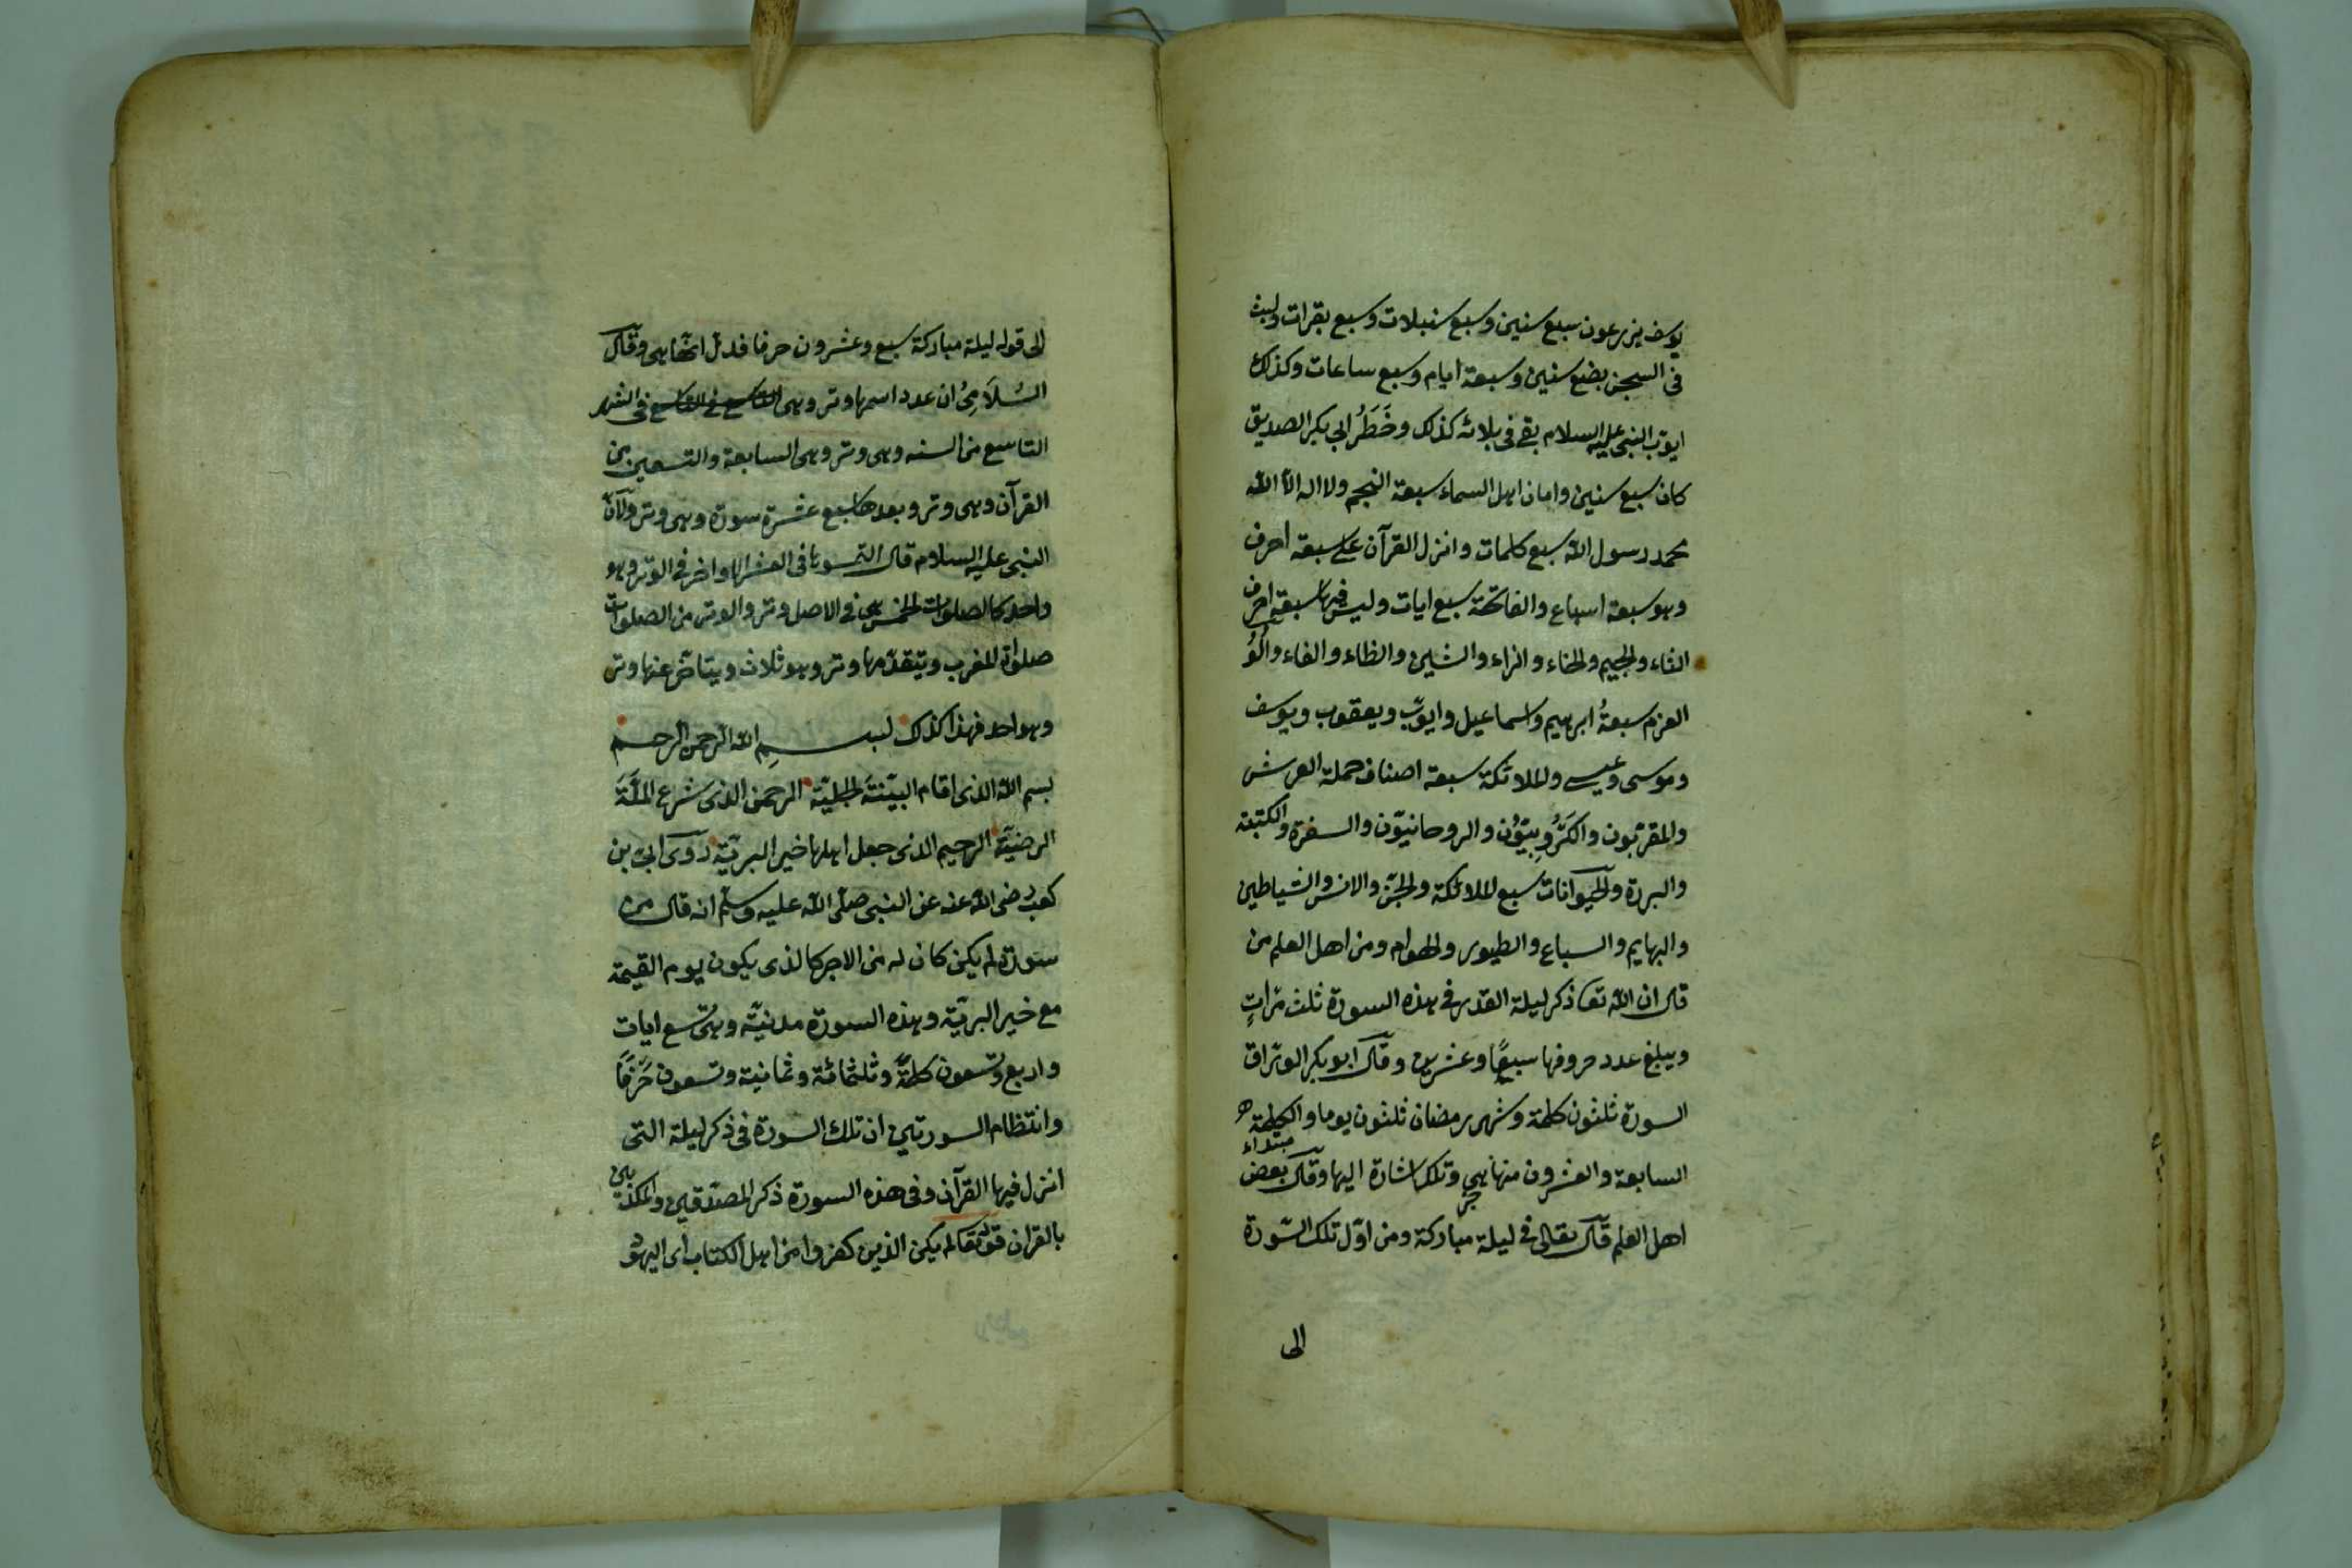 يوسف يزرعون سبع سنين وسبع سنبلات وسبع بقرات ولبث
فى السجن بضع سنين وسبعة ايام وسبع ساعات وكذلك
ايوب النبى عليه السلام بقى فى بلائه كذلك وخَطَرُ ابى بكر الصديق
كان سبع سنين وامان اهل السماء سبعة انجم ولا اله الا الله
محمد رسول الله سبع كلمات وانزل القرآن على سبعة احرف
وهو سبعة اسباع والفاتحة سبع ايات وليس فيها سبعة احرف
الثاء والجيم والخاء والزاء والشين والظاء والفاء واُلُو
العزم سبعةُ ابرهيم واسماعيل وايوب ويعقوب ويوسف
وموسى وعيسى والملائكة سبعة اصناف حملة العرش
والمقربون والكَرُوبِيّوُن والروحانيّون والسفرة والكتبة
والبررة والحيوانات سبع الملائكة والجن والانس والشياطين
والبهايم والسباع والطيور والهوام ومن اهل العلم من
قال ان الله تعا ذكر ليلة القدر فى هذه السورة ثلث مرّاتٍ
ويبلغ عدد حروفها سبعًا وعشرين وقال ابو بكر الورّاق
السورة ثلثون كلمة وشهر رمضان ثلثون يوما والكلمة
مبتداء
السابعة والعشرون منها هى وتلك اشارة اليها وقال بعض
اهل العلم قال تعالى فى ليلة مباركة ومن اوّل تلك السّورة
الى
الى قوله ليلة مباركة سبع وعشرون حرفا فدلّ انّها هى وقال
السُلَامِىُ ان عدد اسمها وتر وهى التاسع فى الشهر
التاسع من السنه وهى وتر وهى السابعة والتسعين من
القرآن وهى وتر وبعدها سبع عشرة سورة وهى وتر ولانّ
النبى عليه السلام قال التمسوها فى العشر الاواخر فى الوتر وهو
واحد كالصلوات الخمس هى فى الاصل وتر والوتر من الصلوات
صلواة المغرب ويتقدّمها وتر وهو ثلاث ويتاخّر عنها وتر
وهو واحد فهذا كذلك بسم الله الرحمن الرحيم
بسم الله الذى اقام البيّنتَه الجليّة الرحمن الذى شرع الملّةَ
الرضيّة الرحيم الذى جعل اهلها خير البريّة روى ابىّ بن
كعب رضى الله عنه عن النبى صلّى الله عليه وسلّم انه قال من
سورة لم يكن كان له من الاجر كالذى يكون يوم القيمة
مع خير البريّه وهذه السورة مدنيّه وهى تسع ايات
واربع وتسعون كلمةً وثلثمائة وثمانية وتسعون حَرْفًا
وانتظام السورتين ان تلك السورة فى ذكر ليلة التى
انزل فيها القرآن وفى هذه السورة ذكر المصدّقين والمكذّبين
بالقران قوله تعا لم يكن الذين كفروا من اهل الكتاب اى اليهود